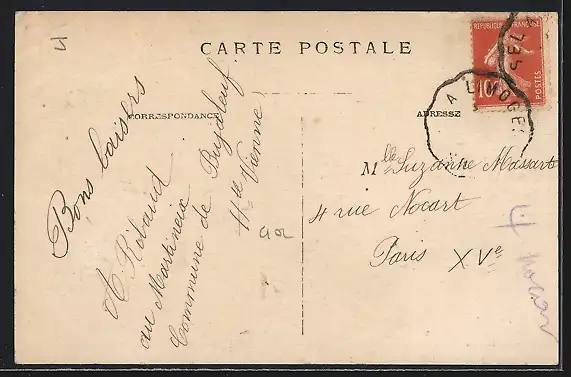 CARTE POSTALE
CORRESPONDANCE
ADRESSE
Bons baisers
A Ribaud
au Martineix
Commune de Bujaleuf
Hte Vienne
Mlle Suzanne Massart
4 rue Nocart
Paris XVe
REPUBLIQUE FRANÇAISE
10c
POSTES
A LIMOGES